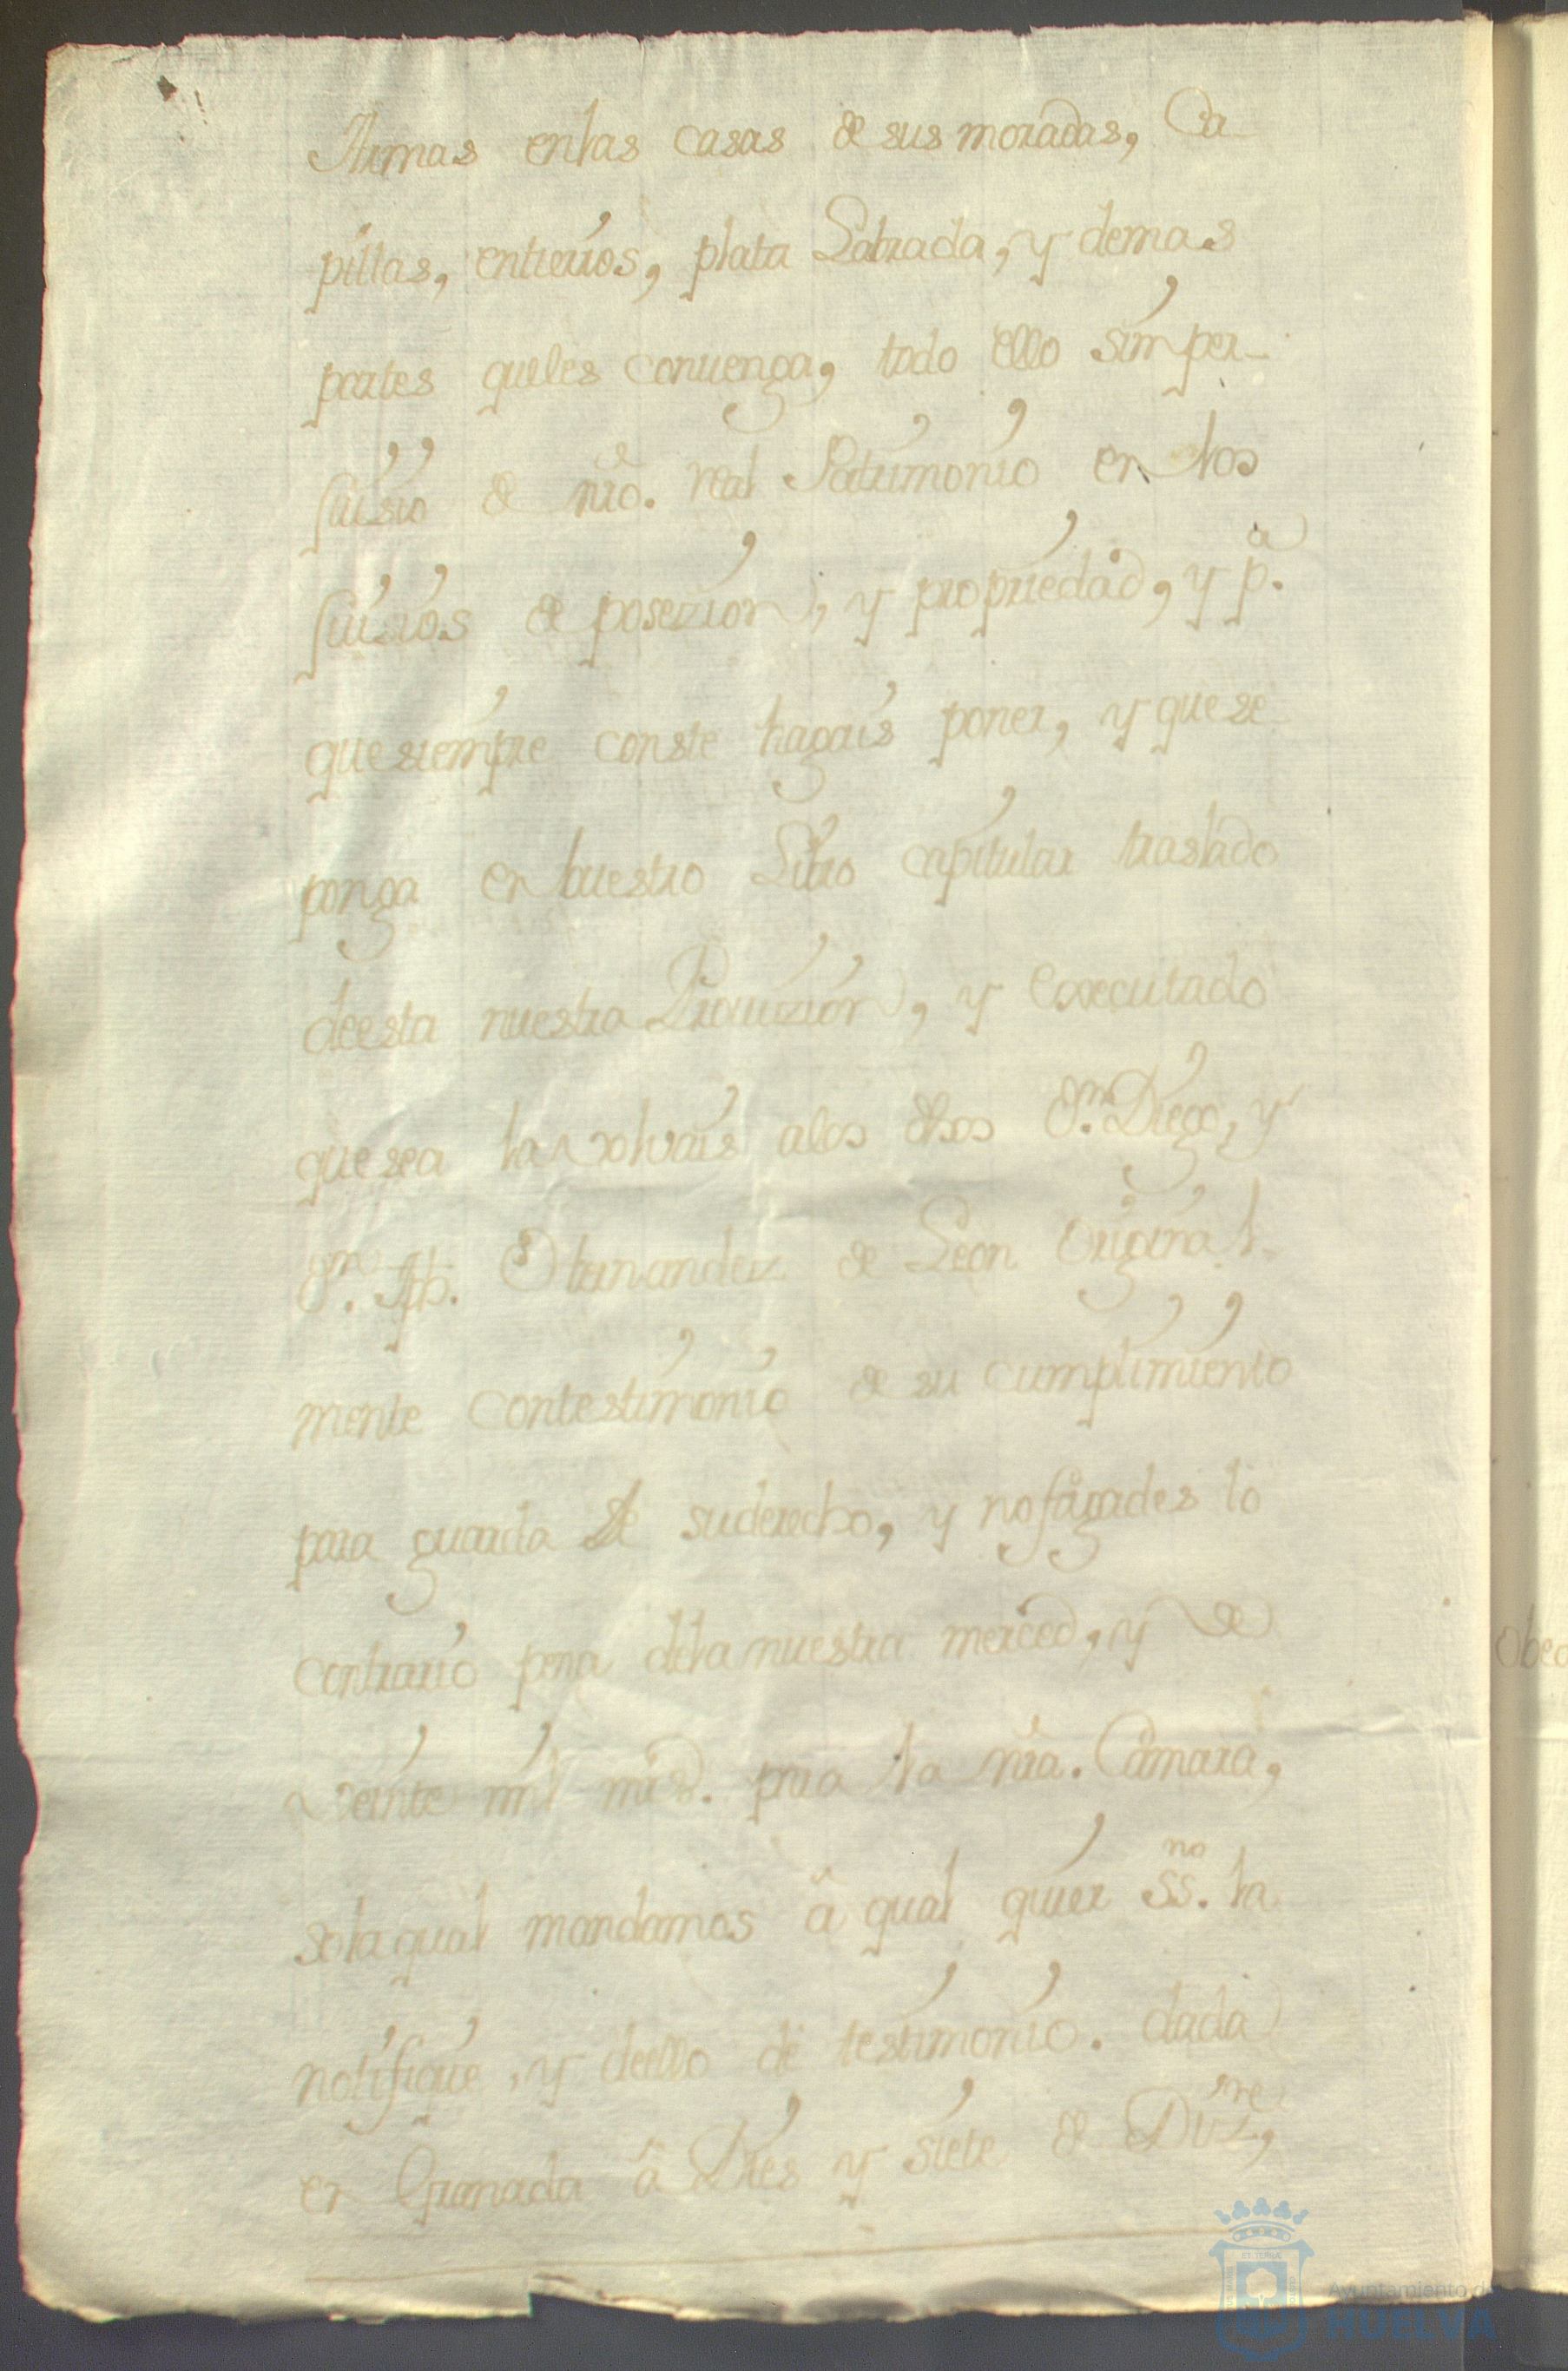 Armas enlas casas de sus moradas, Ca-
pillas, entierros, plata Labrada, y demas
partes queles conuenga, todo ello sin per-
juisio de nro. real Patrimonio en los
juisios de posezion, y propriedad, y p.a
quesiempre conste hagais poner, y quese
ponga en buestro Libro capitular traslado
deesta nuestra Prouizion, y executado
quesea la volvais alos dhos Dn. Diego, y
Dn. Hernandez de Leon Original-
mente contestimonio de su cumplimiento
para guarda de suderecho, y nofagades lo
contrario pena dela nuestra merced, y de
veinte mil mrs. para la nra. Camara,
solaqual mandamos â qual quier ss.no la
notifique, y deello dê testimonio. dada
en Granada â Dies y siete de Diz.re,
Obed
Ayuntamiento de
HUELVA